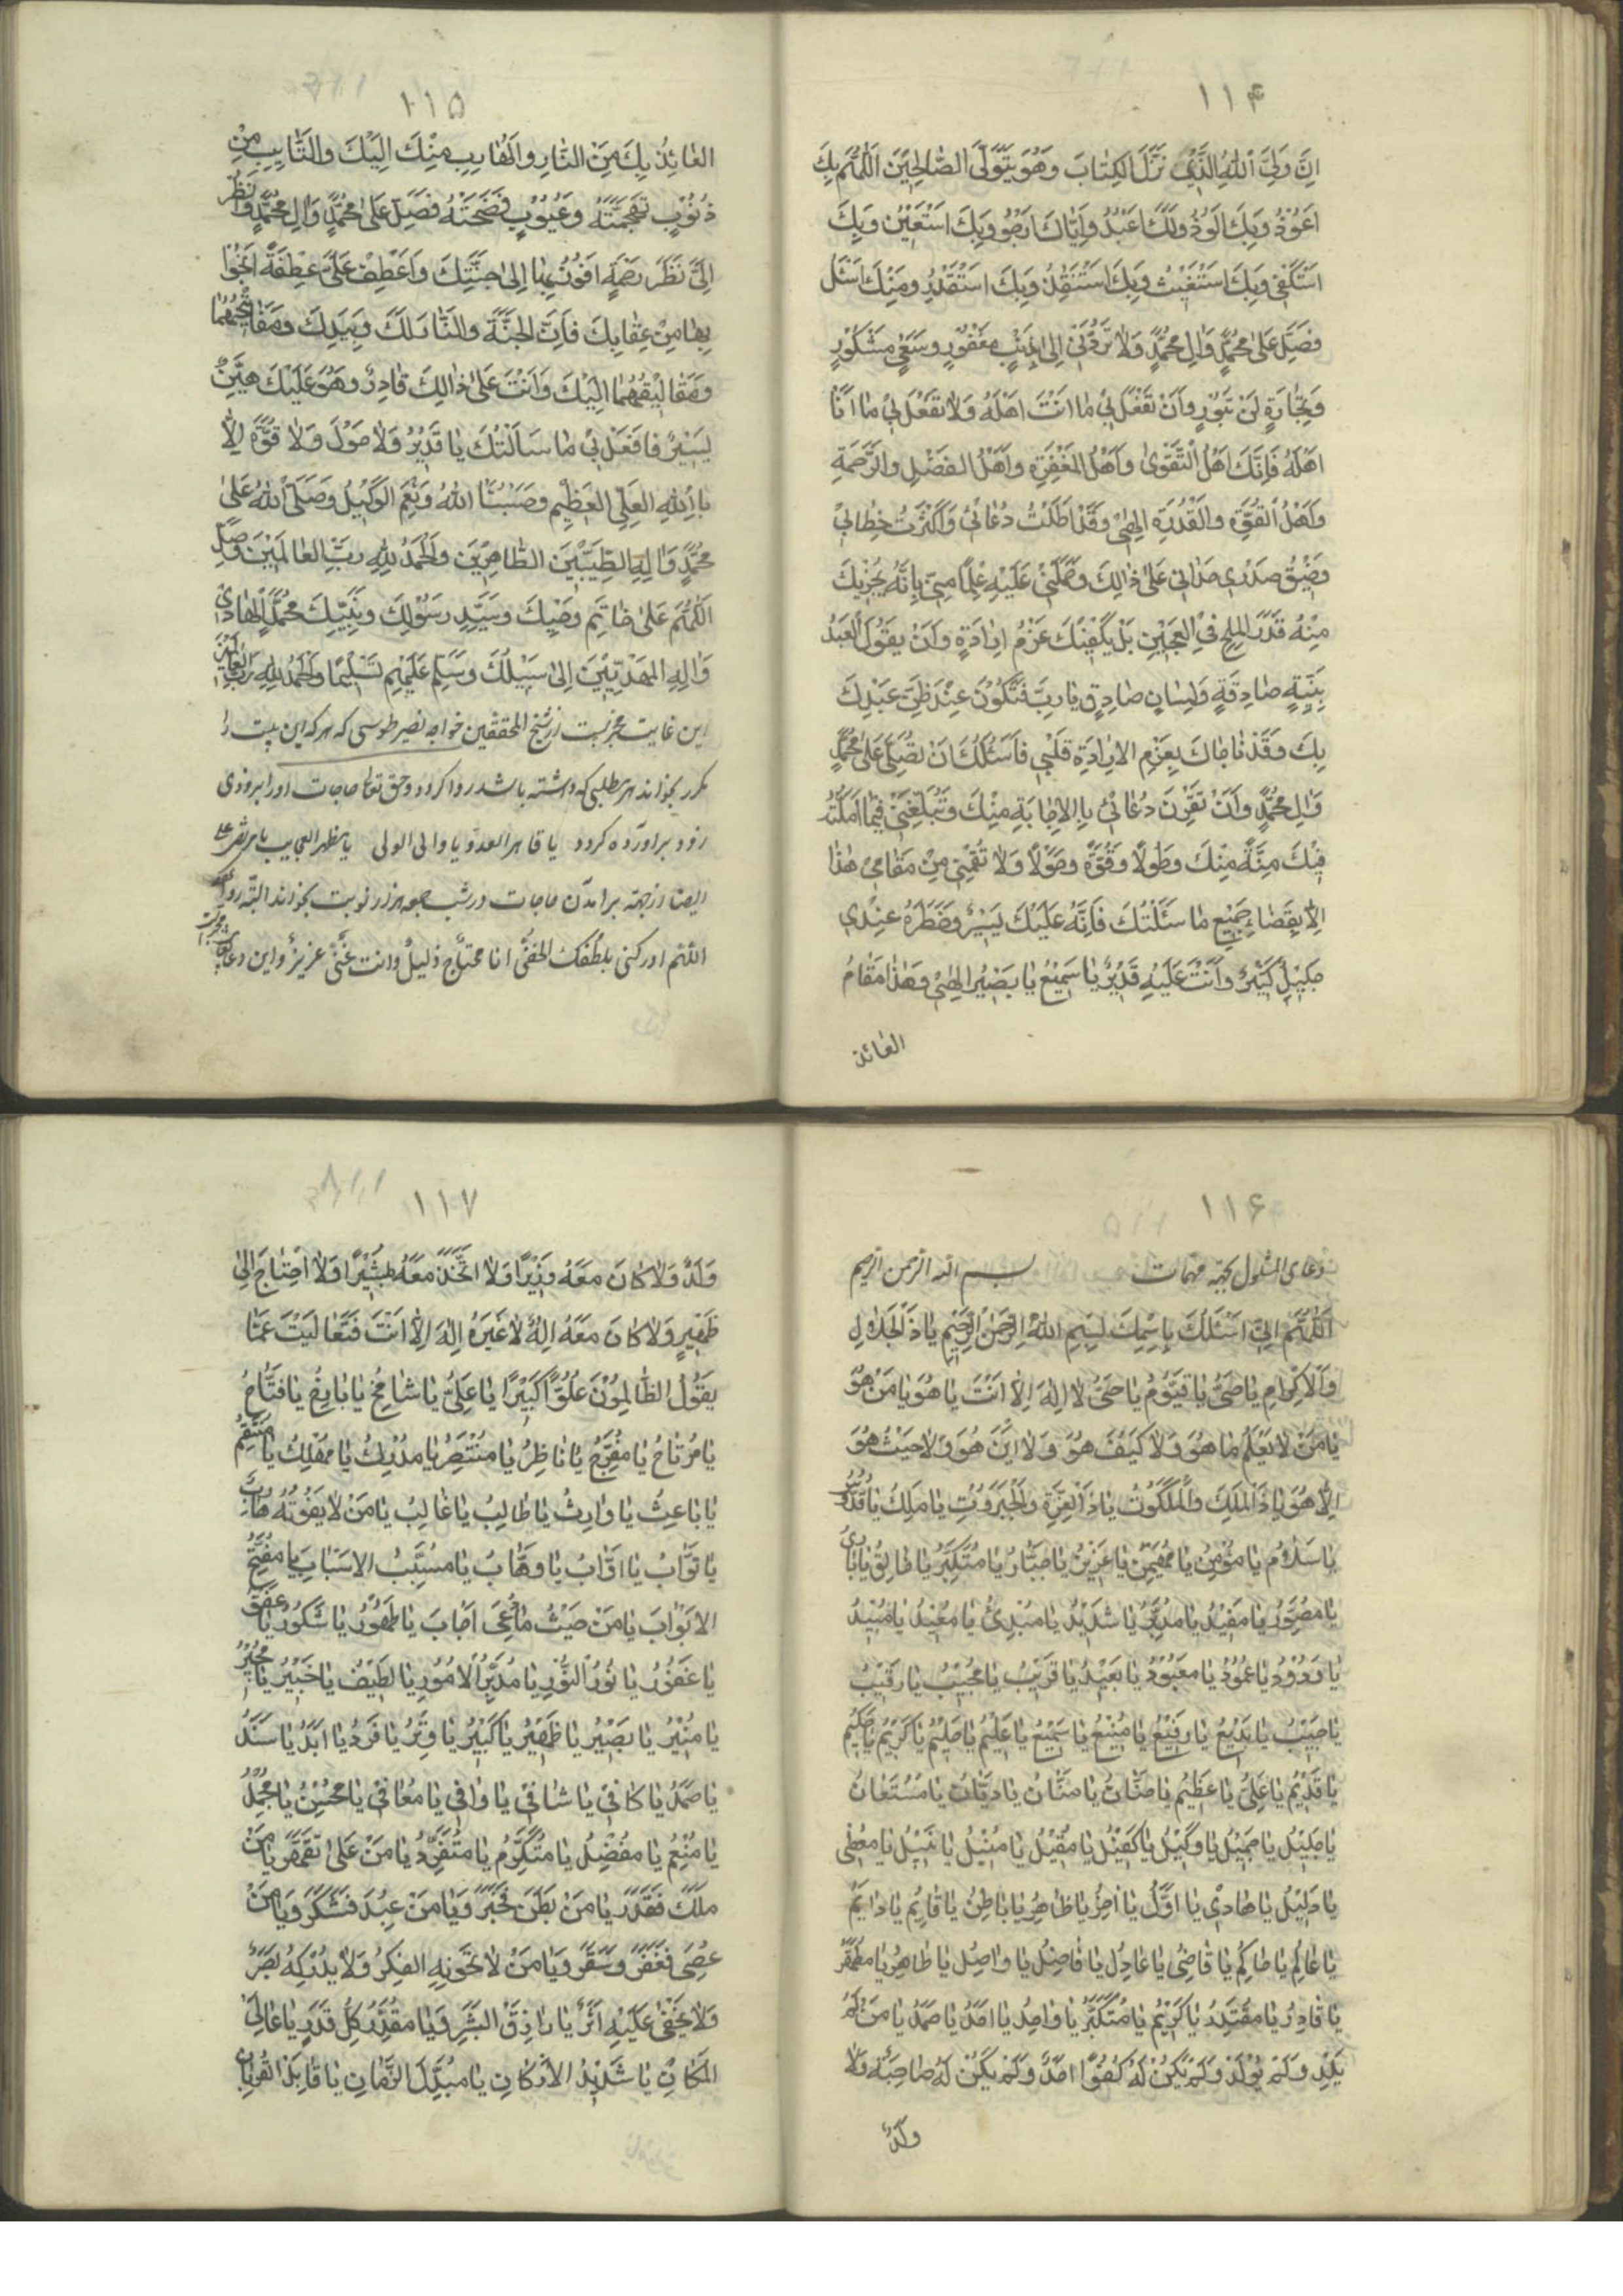 ۱۱۴
اِنَّ وَلِیَّ اللهُ الَّذِی نَزَّلَ الکِتٰابَ وَهُوَ یَتَوَلَّی الصّٰالِحِیْنَ اَللّٰهُمَّ بِكَ
اَعُوْذُ وَبِكَ اَلُوْذُ وَلَكَ اَعْبُدُ وَاِیّٰاكَ اَرْجُو وَبِكَ اَسْتَعِیْنُ وَبِكَ
اَسْتَکْفِی وَبِكَ اَسْتَغِیْثُ وَبِكَ اَسْتَنْقِذُ وَبِكَ اَسْتَقْدِرُ وَمِنْكَ اَسْئَلُ
فَصَلِّ عَلیٰ مُحَمَّدٍ وَاٰلِ مُحَمَّدٍ وَلاٰ تَرُدَّنِی اِلاّٰ بِذَنْبٍ مَغْفُوْرٍ وَسَعْیٍ مَشْکُوْرٍ
وَتِجٰارَةٍ لَنْ تَبُوْرٍ وَاَنْ تَفْعَلَ بِی مٰا اَنْتَ اَهْلُهُ وَلاٰ تَفْعَلَ بِی مٰا اَنَا
اَهْلُهُ فَاِنَّكَ اَهْلُ التَّقْویٰ وَاَهْلُ المَغْفِرَةِ وَاَهْلُ الفَضْلِ وَالرَّحْمَةِ
وَاَهْلُ القُوَّةِ وَالقُدْرَةِ اِلٰهِی وَقَدْ اَطَلْتُ دُعٰائِی وَاَکْثَرْتُ خِطٰابِی
وَضِیْقُ صَدْرِی حَدٰانِی عَلیٰ ذٰالِكَ وَحَمَلَنِی عَلَیْهِ عِلْماً مِنّی بِاَنَّهُ یُجْزِیْكَ
مِنْهُ قَدْرُ المِلْحِ فِی العَجِیْنِ بَلْ یَکْفِیْكَ عَزْمُ اِرٰادَةٍ وَاَنْ یَقُوْلَ العَبْدُ
بِنِیَّةٍ صٰادِقَةٍ وَلِسٰانٍ صٰادِقٍ یٰارَبِّ فَتَکُوْنَ عِنْدَ ظَنِّ عَبْدِكَ
بِكَ وَقَدْ نٰاجٰاكَ بِعَزْمِ الاِرٰادَةِ قَلْبِی فَاَسْئَلُكَ اَنْ تُصَلِّیَ عَلیٰ مُحَمَّدٍ
وَاٰلِ مُحَمَّدٍ وَاَنْ تُقْرِنَ دُعٰائِی بِالاِجٰابَةِ مِنْكَ وَتُبَلِّغَنِی فِیْمٰا اَمَّلْتُهُ
فِیْكَ مِنَّةً مِنْكَ وَطَوْلاً وَقُوَّةً وَحَوْلاً وَلاٰ تُقِمْنِی مِنْ مَقٰامِی هٰذٰا
اِلاّٰ بِقَضٰاءِ جَمِیْعِ مٰا سَئَلْتُكَ فَاِنَّهُ عَلَیْكَ یَسِیْرٌ وَخَطَرُهُ عِنْدِی
جَلِیْلٌ کَثِیْرٌ وَاَنْتَ عَلَیْهِ قَدِیْرٌ یٰا سَمِیْعُ یٰا بَصِیْرُ اِلٰهِی وَهٰذٰا مَقٰامُ
العٰائذ
۱۱۵
العٰائِذُ بِكَ مِنَ النّٰارِ وَالهٰارِبِ مِنْكَ اِلَیْكَ وَالتّٰایِبِ مِنْ
ذُنُوْبٍ تَهَجَّمَتْهُ وَعُیُوْبٍ فَضَحَتْهُ فَصَلِّ عَلیٰ مُحَمَّدٍ وَاٰلِ مُحَمَّدٍ وَانْظُرْ
اِلَیَّ نَظَرَ رَحْمَةٍ اَفُوْزُ بِهٰا اِلیٰ جَنَّتِكَ وَاَعْطِفْ عَلَیَّ عَطْفَةً اَنْجُوْا
بِهٰا مِنْ عِقٰابِكَ فَاِنَّ الجَنَّةَ وَالنّٰارَ لَكَ وَبِیَدِكَ وَمَفٰاتِیْحُهُمٰا
وَمَغٰالِیْقُهُمٰا اِلَیْكَ وَاَنْتَ عَلیٰ ذٰالِكَ قٰادِرٌ وَهُوَ عَلَیْكَ هَیِّنٌ
یَسِیْرٌ فَافْعَلْ بِی مٰا سَاَلْتُكَ یٰا قَدِیْرُ وَلاٰ حَوْلَ وَلاٰ قُوَّةَ اِلاّٰ
بِاللهِ العَلِیِّ العَظِیْمِ وَحَسْبُنَا اللهُ وَنِعْمَ الوَکِیْلُ وَصَلَّی اللهُ عَلیٰ
مُحَمَّدٍ وَاٰلِهِ الطَّیِّبِیْنَ الطّٰاهِرِیْنَ وَالحَمْدُ لِلّٰهِ رَبِّ العٰالَمِیْنَ وَصَلِّ
اَللّٰهُمَّ عَلیٰ خٰاتِمِ وَحْیِكَ وَسَیِّدِ رَسُوْلِكَ وَنَبِیِّكَ مُحَمَّدٍ الهٰادِی
وَاٰلِهِ المَهْدِیِّیْنَ اِلیٰ سَبِیْلِكَ وَسَلِّمْ عَلَیْهِم تَسْلِیْمًا وَالحَمْدُ لِلّٰهِ رَبِّ العٰالَمِیْنَ
این غایت مجربست از شیخ المحققین خواجه نصیر طوسی که هر که این بیت را
مکرر بخواند هر مطلبی که داشته باشد روا کردد وحق تعالی حاجات اورا بزودی
زود برآورده کردد یا قاهر العدو یا والی الولی یا مظهر العجایب یا مرتضی علی
ایضا از جهة برآمدن حاجات در شب جمعه هزار نوبت بخواند البتّه روا
اللهم ادرکنی بلطفك الخفی انا محتاج ذلیلٌ وانت غنیٌّ عزیزٌ واین دعا
۱۱۶
دعای المشلول بجهة مهمات بسم الله الرحمن الرحیم
اَللّٰهُمَّ اِنِّی اَسْئَلُكَ بِاِسْمِكَ بِسْمِ اللهِ الرَّحْمٰنِ الرَّحِیْمِ یٰا ذَاالجَلاٰلِ
وَالاِکْرٰامِ یٰا حَیُّ یٰا قَیُّوْمُ یٰا حَیُّ لاٰ اِلٰهَ اِلاّٰ اَنْتَ یٰا هُوَ یٰا مَنْ هُوَ
یٰا مَنْ لاٰ یَعْلَمُ مٰا هُوَ وَلاٰ کَیْفَ هُوَ وَلاٰ اَیْنَ هُوَ وَلاٰ حَیْثُ هُوَ
اِلاّٰ هُوَ یٰا ذَاالمُلْكِ وَالمَلَکُوْتِ یٰا ذَاالعِزَّةِ وَالجَبَرُوْتِ یٰا مَلِكُ یٰا قُدُّوْسُ
یٰا سَلاٰمُ یٰا مُؤْمِنُ یٰا مُهَیْمِنُ یٰا عَزِیْزُ یٰا جَبّٰارُ یٰا مُتَکَبِّرُ یٰا خٰالِقُ یٰا بٰارِئُ
یٰا مُصَوِّرُ یٰا مُفِیْدُ یٰا مُدَبِّرُ یٰا شَدِیْدُ یٰا مُبْدِئُ یٰا مُعِیْدُ یٰا مُبِیْدُ
یٰا وَدُوْدُ یٰا مَحْمُوْدُ یٰا مَعْبُوْدُ یٰا بَعِیْدُ یٰا قَرِیْبُ یٰا مُجِیْبُ یٰا رَقِیْبُ
یٰا حَسِیْبُ یٰا بَدِیْعُ یٰا رَفِیْعُ یٰا مَنِیْعُ یٰا سَمِیْعُ یٰا عَلِیْمُ یٰا حَلِیْمُ یٰا کَرِیْمُ یٰا حَکِیْمُ
یٰا قَدِیْمُ یٰا عَلِیُّ یٰا عَظِیْمُ یٰا حَنّٰانُ یٰا مَنّٰانُ یٰا دَیّٰانُ یٰا مُسْتَعٰانُ
یٰا جَلِیْلُ یٰا جَمِیْلُ یٰا وَکِیْلُ یٰا کَفِیْلُ یٰا مُقِیْلُ یٰا مُنِیْلُ یٰا نَبِیْلُ یٰا مُعْطِی
یٰا دَلِیْلُ یٰا هٰادِی یٰا اَوَّلُ یٰا اٰخِرُ یٰا ظٰاهِرُ یٰا بٰاطِنُ یٰا قٰایِمُ یٰا دٰایِمُ
یٰا عٰالِمُ یٰا حٰاکِمُ یٰا قٰاضِیُ یٰا عٰادِلُ یٰا فٰاضِلُ یٰا وٰاصِلُ یٰا طٰاهِرُ یٰا مُطَهِّرُ
یٰا قٰادِرُ یٰا مُقْتَدِرُ یٰا کَرِیْمُ یٰا مُتَکَبِّرُ یٰا وٰاحِدُ یٰا اَحَدُ یٰا صَمَدُ یٰا مَنْ لَمْ
یَلِدْ وَلَمْ یُوْلَدْ وَلَمْ یَکُنْ لَهُ کُفُوًا اَحَدٌ وَلَمْ یَکُنْ لَهُ صٰاحِبَةٌ وَلاٰ
وَلَدٌ
۱۱۷
وَلَدٌ وَلاٰ کٰانَ مَعَهُ وَزِیْرًا وَلاٰ اتَّخَذَ مَعَهُ مُشِیْرًا وَلاٰ احْتٰاجَ اِلیٰ
ظَهِیْرٍ وَلاٰ کٰانَ مَعَهُ اِلٰهٌ لاٰ غَیْرُهُ اِلٰهَ اِلاّٰ اَنْتَ فَتَعٰالَیْتَ عَمّٰا
یَقُوْلُ الظّٰالِمُوْنَ عُلُوًّا کَبِیْرًا یٰا عَلِیُّ یٰا شٰامِخُ یٰا بٰاذِخُ یٰا فَتّٰاحُ
یٰا مُرْتٰاحُ یٰا مُفَرِّجُ یٰا نٰاظِرُ یٰا مُنْتَصِرُ یٰا مُدْرِكُ یٰا مُهْلِكُ یٰا مُنْتَقِمُ
یٰا بٰاعِثُ یٰا وٰارِثُ یٰا طٰالِبُ یٰا غٰالِبُ یٰا مَنْ لاٰ یَفُوْتُهُ هٰارِبٌ
یٰا تَوّٰابُ یٰا اَوّٰابُ یٰا وَهّٰابُ یٰا مُسَبِّبُ الاَسْبٰابِ یٰا مُفَتِّحَ
الاَبْوٰابَ یٰا مَنْ حَیْثُ مٰا دُعِیَ اَجٰابَ یٰا طَهُوْرُ یٰا شَکُوْرُ یٰا عَفُوُّ
یٰا غَفُوْرُ یٰا نُوْرُ النُّوْرِ یٰا مُدَبِّرَ الاُمُوْرِ یٰا لَطِیْفُ یٰا خَبِیْرُ یٰا مُجِیْرُ
یٰا مُنِیْرُ یٰا بَصِیْرُ یٰا ظَهِیْرُ یٰا کَبِیْرُ یٰا وِتْرُ یٰا فَرْدُ یٰا اَبَدُ یٰا سَنَدُ
یٰا صَمَدُ یٰا کٰافِی یٰا شٰافِی یٰا وٰافِی یٰا مُعٰافِی یٰا مُحْسِنُ یٰا مُجْمِلُ
یٰا مُنْعِمُ یٰا مُفْضِلُ یٰا مُتَکَرِّمُ یٰا مُتَفَرِّدُ یٰا مَنْ عَلیٰ فَقَهَرَ یٰا مَنْ
مَلَكَ فَقَدَرَ یٰا مَنْ بَطَنَ فَخَبَرَ وَیٰا مَنْ عُبِدَ فَشَکَرَ وَیٰا مَنْ
عُصِیَ فَغَفَرَ وَسَتَرَ وَیٰا مَنْ لاٰ تَحْوِیْهِ الفِکَرُ وَلاٰ یُدْرِکُهُ بَصَرٌ
وَلاٰ یَخْفیٰ عَلَیْهِ اَثَرٌ یٰا رٰازِقَ البَشَرِ وَیٰا مُقَدِّرَ کُلِّ قَدَرٍ یٰا عٰالِیَ
المَکٰانِ یٰا شَدِیْدُ الاَرْکٰانِ یٰا مُبَدِّلَ الزَّمٰانِ یٰا قٰابِلَ القُرْبٰانِ